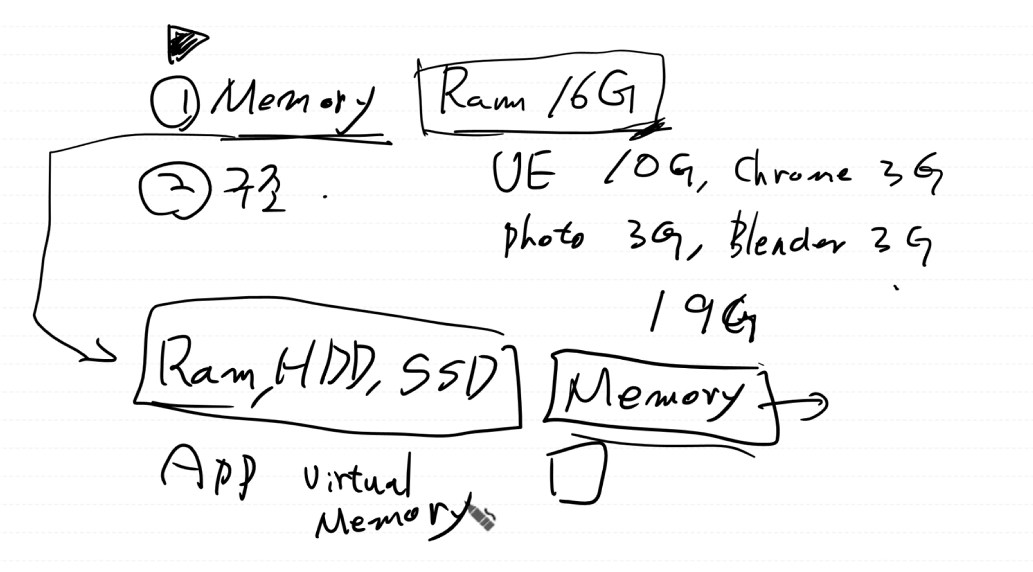 ① Memory Ram 16G
② 구조
UE 10G, Chrome 3G
photo 3G, Blender 3G
19G
Ram, HDD, SSD Memory
App Virtual Memory